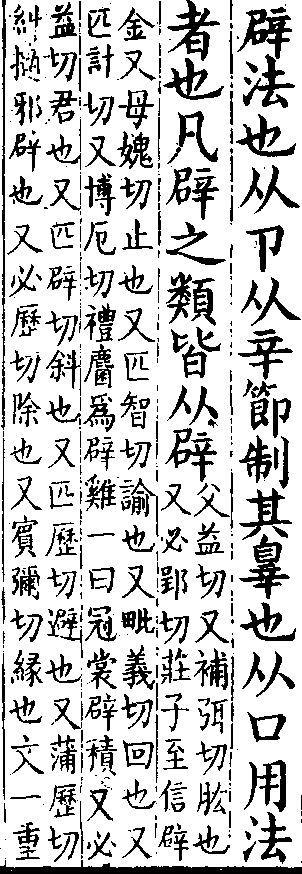 辟法也从卩从辛節制其辠也从口用法
者也凡辟之類皆从辟
父益切又補弭切肱也
又必郢切莊子至信辟
金又母媿切止也又匹智切諭也又毗義切回也又
匹計切又博厄切禮麕爲辟雞一曰冠裳辟積又必
益切君也又匹辟切斜也又匹歷切避也又蒲歷切
糾擿邪辟也又必歷切除也又賓彌切緣也文一重